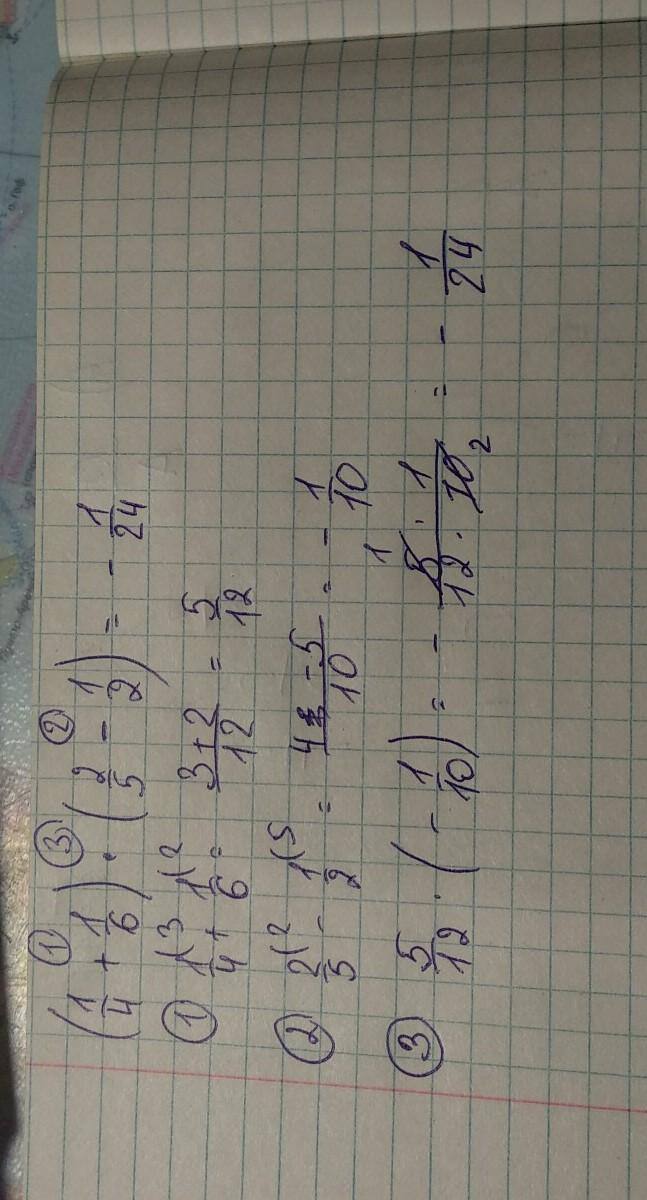 ① ③ ②
(1/4 + 1/6) · (2/5 - 1/2) = - 1/24
① 1/4⁽³ + 1/6⁽² = 3+2/12 = 5/12
② 2/5⁽² - 1/2⁽⁵ = 4-5/10 = - 1/10
③ 5/12 · (- 1/10) = - 5¹ · 1/12 · 10₂ = - 1/24